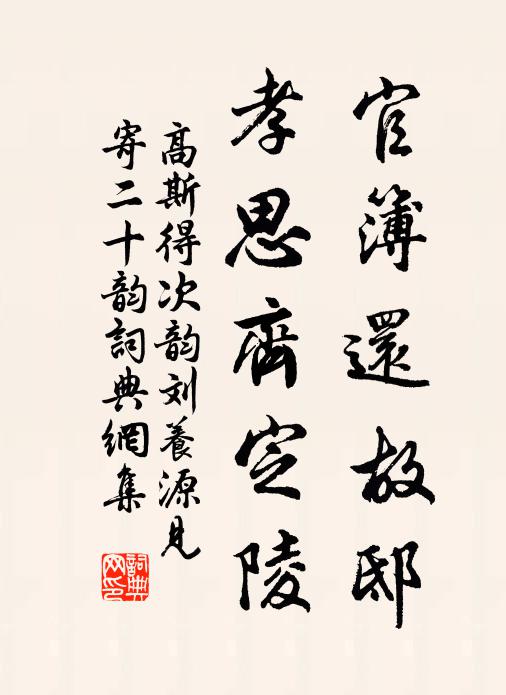 官簿還故邸
孝思齊定陵
高斯得次韵刘養源見
寄二十韵詞典網集
詞典网印